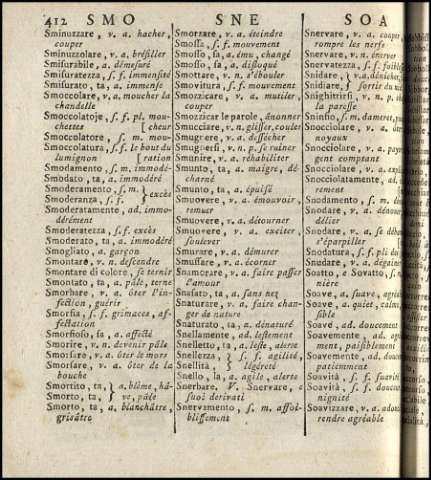 412 SMO SNE SOA
Sminuzzare, v. a. hacher,
couper
Sminuzzolare, v. a. brésiller
Smisurabile, a. démesuré
Smisuratezza, s. f. immensité
Smisurato, ta, a. immense
Smoccolare, v. a. moucher la
chandelle
Smoccolatoje, s. f. pl. mou-
chettes [cheur
Smoccolatore, s. m. mou-
Smoccolatura, s. f. le bout du
lumignon [ration
Smodamento, s. m. immodé-
Smodato, ta, a. immodéré
Smoderamento, s. m. } excès
Smoderanza, s. f.
Smoderatamente, ad. immo-
dérément
Smoderatezza, s. f. excès
Smoderato, ta, a. immodéré
Smogliato, a. garçon
Smontare, v. n. descendre
Smontare di colore, se ternir
Smontato, ta, a. pâle, terne
Smorbare, v. a. ôter l'in-
fection, guérir
Smorfia, s. f. grimaces, af-
fectation
Smorfioso, sa, a. affecté
Smorire, v. n. devenir pâle
Smorsare, v. a. ôter le mors
Smorsare, v. a. ôter de la
bouche
Smortito, ta, } a. blême, hâ-
Smorto, ta, } ve, pâle
Smorto, ta, a. blanchâtre,
grisâtre
Smorzare, v. a. éteindre
Smossa, s. f. mouvement
Smosso, sa, a. ému, changé
Smosso, sa, a. disloqué
Smottare, v. n. s'ébouler
Smovitura, s. f. mouvement
Smozzicare, v. a. mutiler,
couper
Smozzicar le parole, ânonner
Smucciare, v. n. glisser, couler
Smugnere, v. a. dessécher
Smugnersi, v. n. p. se ruiner
Smunire, v. a. réhabiliter
Smunto, ta, a. maigre, dé-
charné
Smunto, ta, a. épuisé
Smuovere, v. a. émouvoir,
remuer
Smuovere, v. a. détourner
Smuovere, v. a. exciter
soulever
Smurare, v. a. démurer
Smussare, v. a. écorner
Snamorare, v. a. faire passer
l'amour
Snasato, ta, a. sans nez
Snaturare, v. a. faire chan-
ger de nature
Snaturato, ta, a. dénaturé
Snellamente, ad. lestement
Snelletto, ta, a. leste, alerte
Snellezza, } s. f. agilité,
Snellità, } légéreté
Snello, la, a. agile, alerte
Snerbare, V. Snervare, e
suoi derivati
Snervamento, s. m. affoi-
blissement
Snervare, v. a. couper
rompre les nerfs
Snervare, v. n. énerver
Snervatezza, s. f. foiblesse
Snidare, } v. a. dénicher,
Snidiare, } sortir du nid
Snighittirsi, v. n. p. chasser
la paresse
Sninfio, s. m. dameret,
Snocciolare, v. a. ôter
noyaux
Snocciolare, v. a. payer ar-
gent comptant
Snocciolare, v. a. expliquer
Snocciolatamente, ad. clai-
rement
Snodamento, s. m.
Snodare, v. a. dénouer
délier
Snodare, v. a.
s'éparpiller
Snodatura, s. f. pli du
Snudare, v. a. dégaîner
Soatto, e Sovatto, s. m.
nière
Soave, a. suave, agréable
Soave, a. quiet, calme,
sible
Soave, ad. doucement
Soavemente, ad. agréable-
ment, paisiblement
Soavemente, ad. doucement,
patiemment
Soavità, s. f. suavité
Soavità, s. f. douceur, bé-
nignité
Soavizzare, v. a. adoucir
rendre agréable